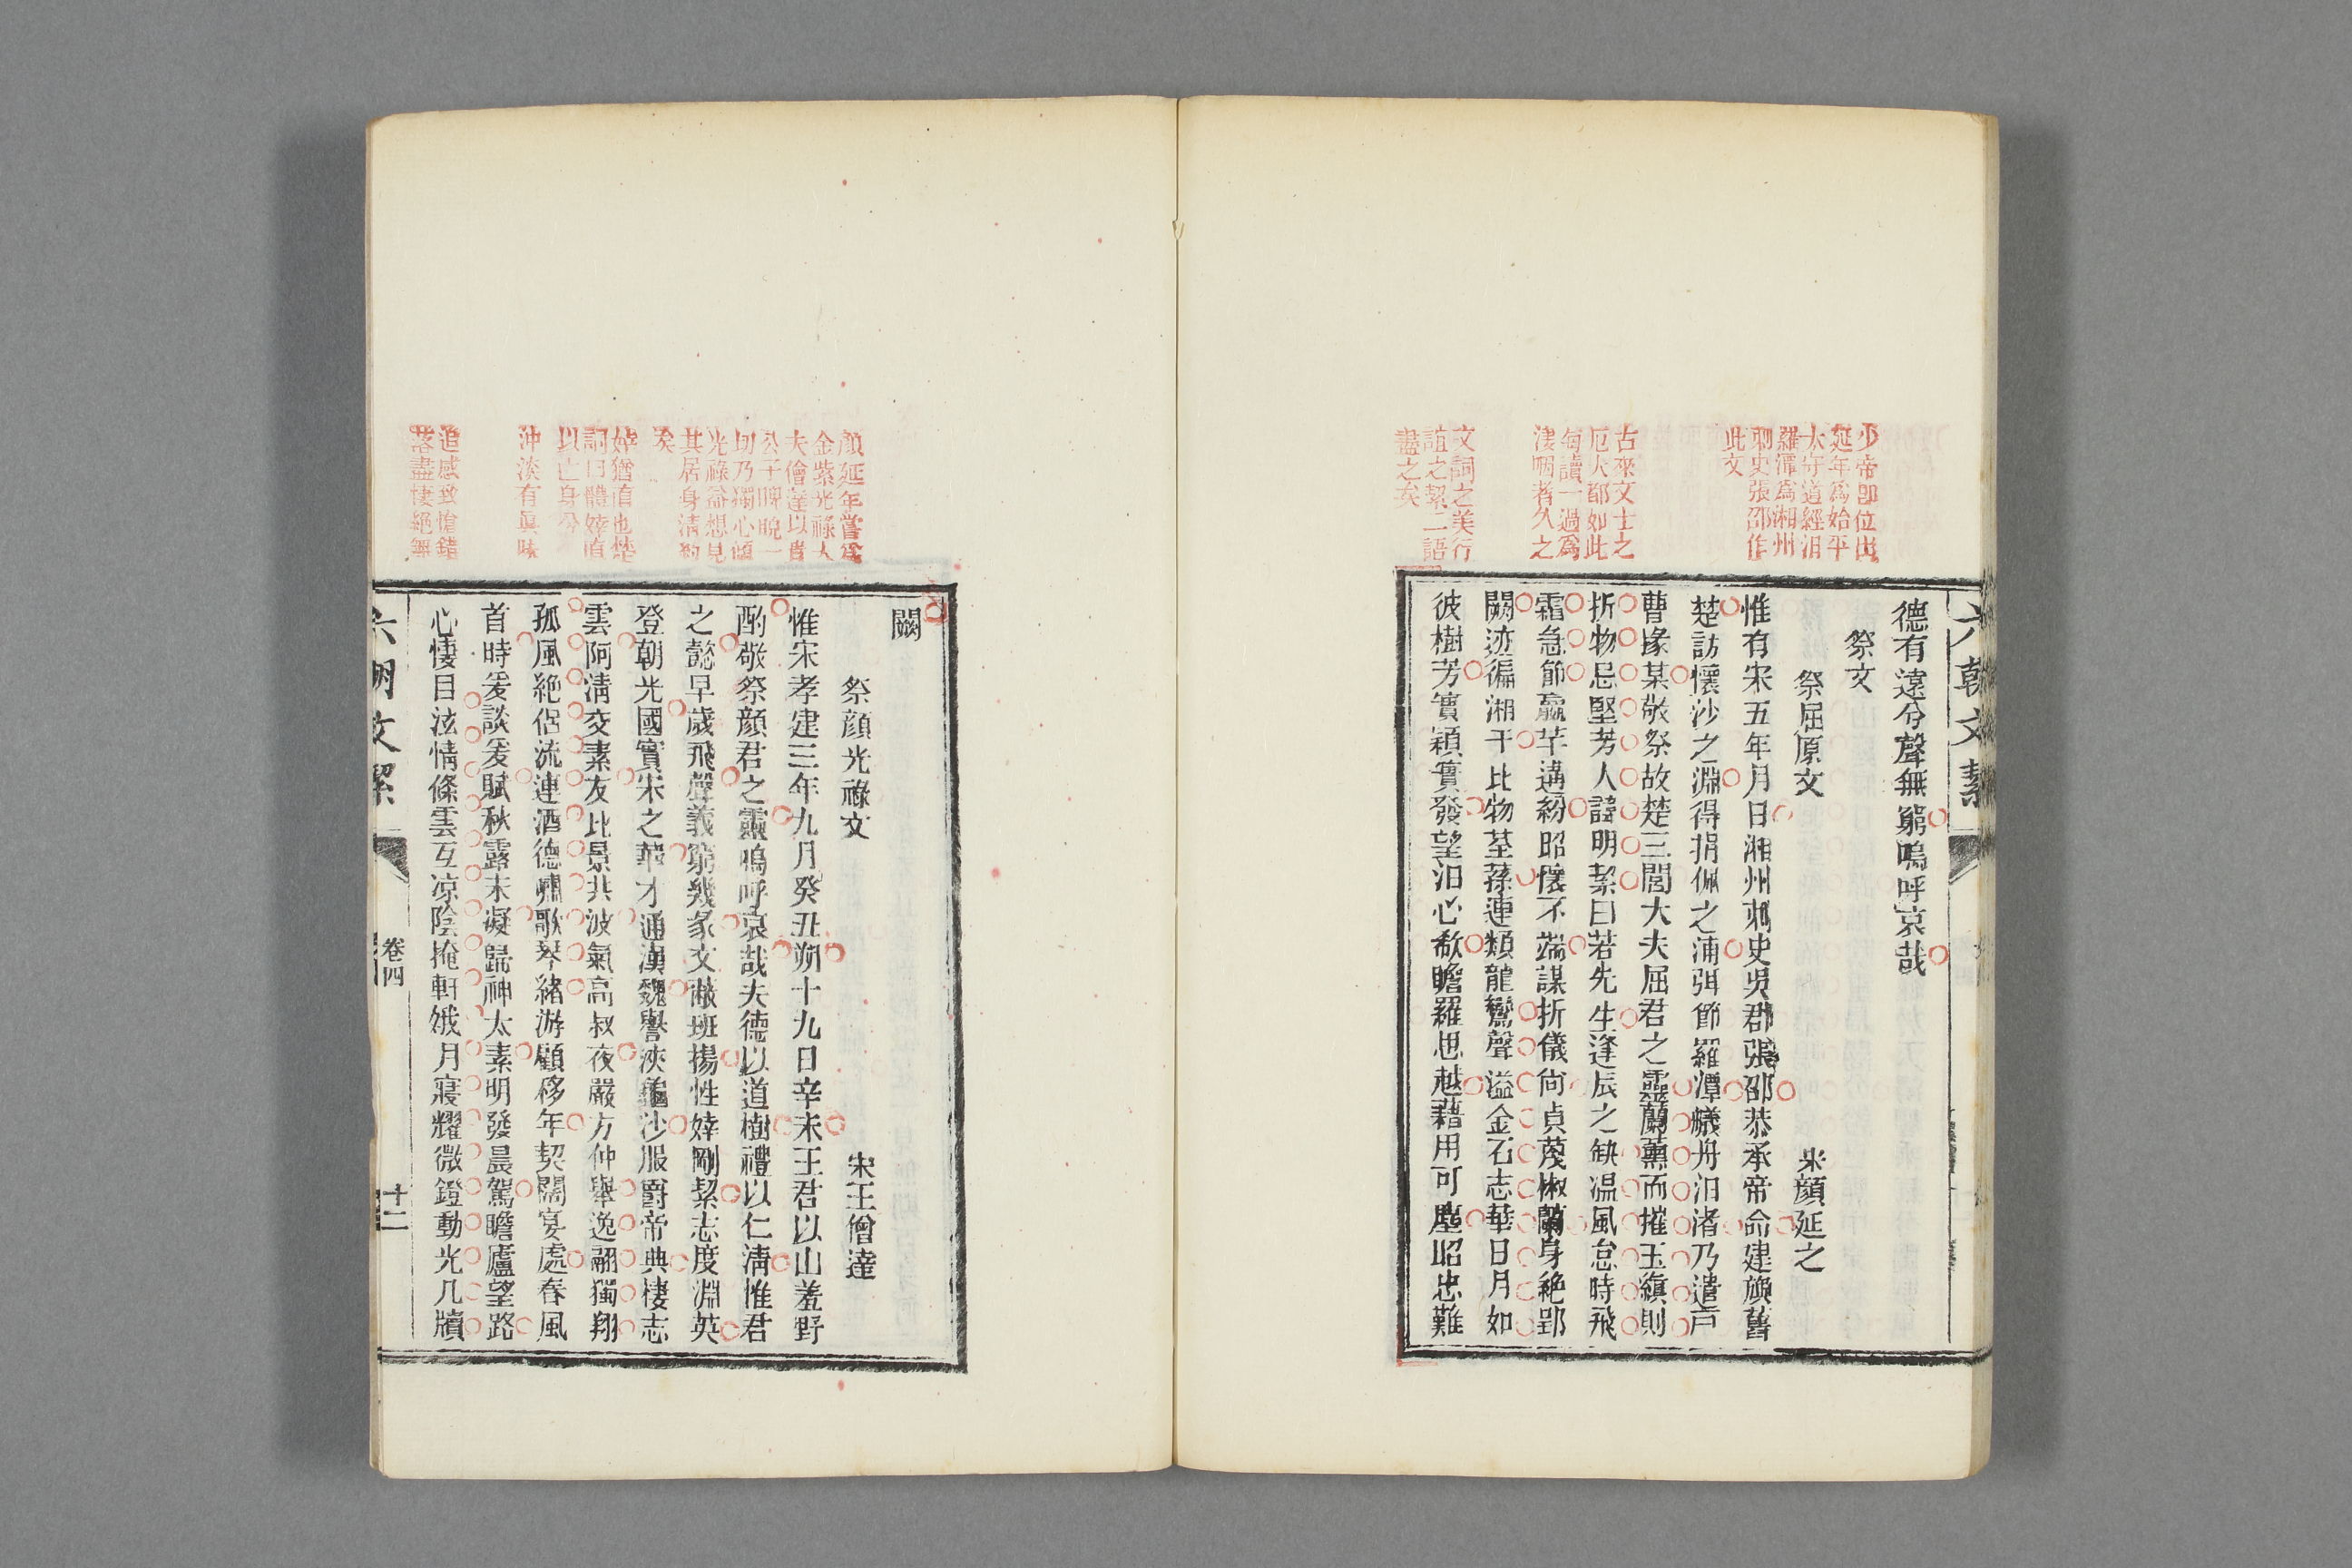 六朝文絜
德有遠兮聲無窮嗚呼哀哉
祭文
祭屈原文
宋顏延之
惟有宋五年月日湘州刺史吳郡張邵恭承帝命建旟舊
楚訪懷沙之淵得捐佩之浦弭節羅潭艤舟汨渚乃遣戸
曹掾某敬祭故楚三閭大夫屈君之靈蘭薰而摧玉縝則
折物忌堅芳人諱明絜曰若先生逢辰之缺温風怠時飛
霜急節嬴芊遘紛昭懷不端謀折儀尚貞蔑椒蘭身絶郢
闕迹徧湘干比物荃蓀連類龍鸞聲溢金石志華日月如
彼樹芳實穎實發望汨心欷瞻羅思越藉用可塵昭忠難
少帝卽位出
延年爲始平
太守道經汨
羅潭爲湘州
刺史張邵作
此文
古來文士之
厄大都如此
每讀一過爲
淒咽者久之
文詞之美行
誼之絜二語
盡之矣
闕
祭顏光祿文
宋王僧達
惟宋孝建三年九月癸丑朔十九日辛未王君以山羞野
酌敬祭顏君之靈嗚呼哀哉夫德以道樹禮以仁淸惟君
之懿早歲飛聲義窮幾彖文蔽班揚性婞剛絜志度淵英
登朝光國實宋之華才通漢魏譽浹龜沙服爵帝典棲志
雲阿淸交素友比景共波氣高叔夜嚴方仲舉逸翮獨翔
孤風絶侶流連酒德嘯歌琴緒游顧移年契闊宴處春風
首時爰談爰賦秋露未凝歸神太素明發晨駕瞻廬望路
心悽目泫情條雲互凉陰掩軒娥月寢耀微鐙動光几牘
顏延年嘗爲
金紫光祿大
夫僧達以貴
公子睥睨一
切乃獨心傾
光祿益想見
其居身淸約
矣
婞猶直也楚
詞曰體婞直
以亡身兮
沖淡有眞味
追感致愴錯
落盡悽絶無
六朝文絜
卷四
十二